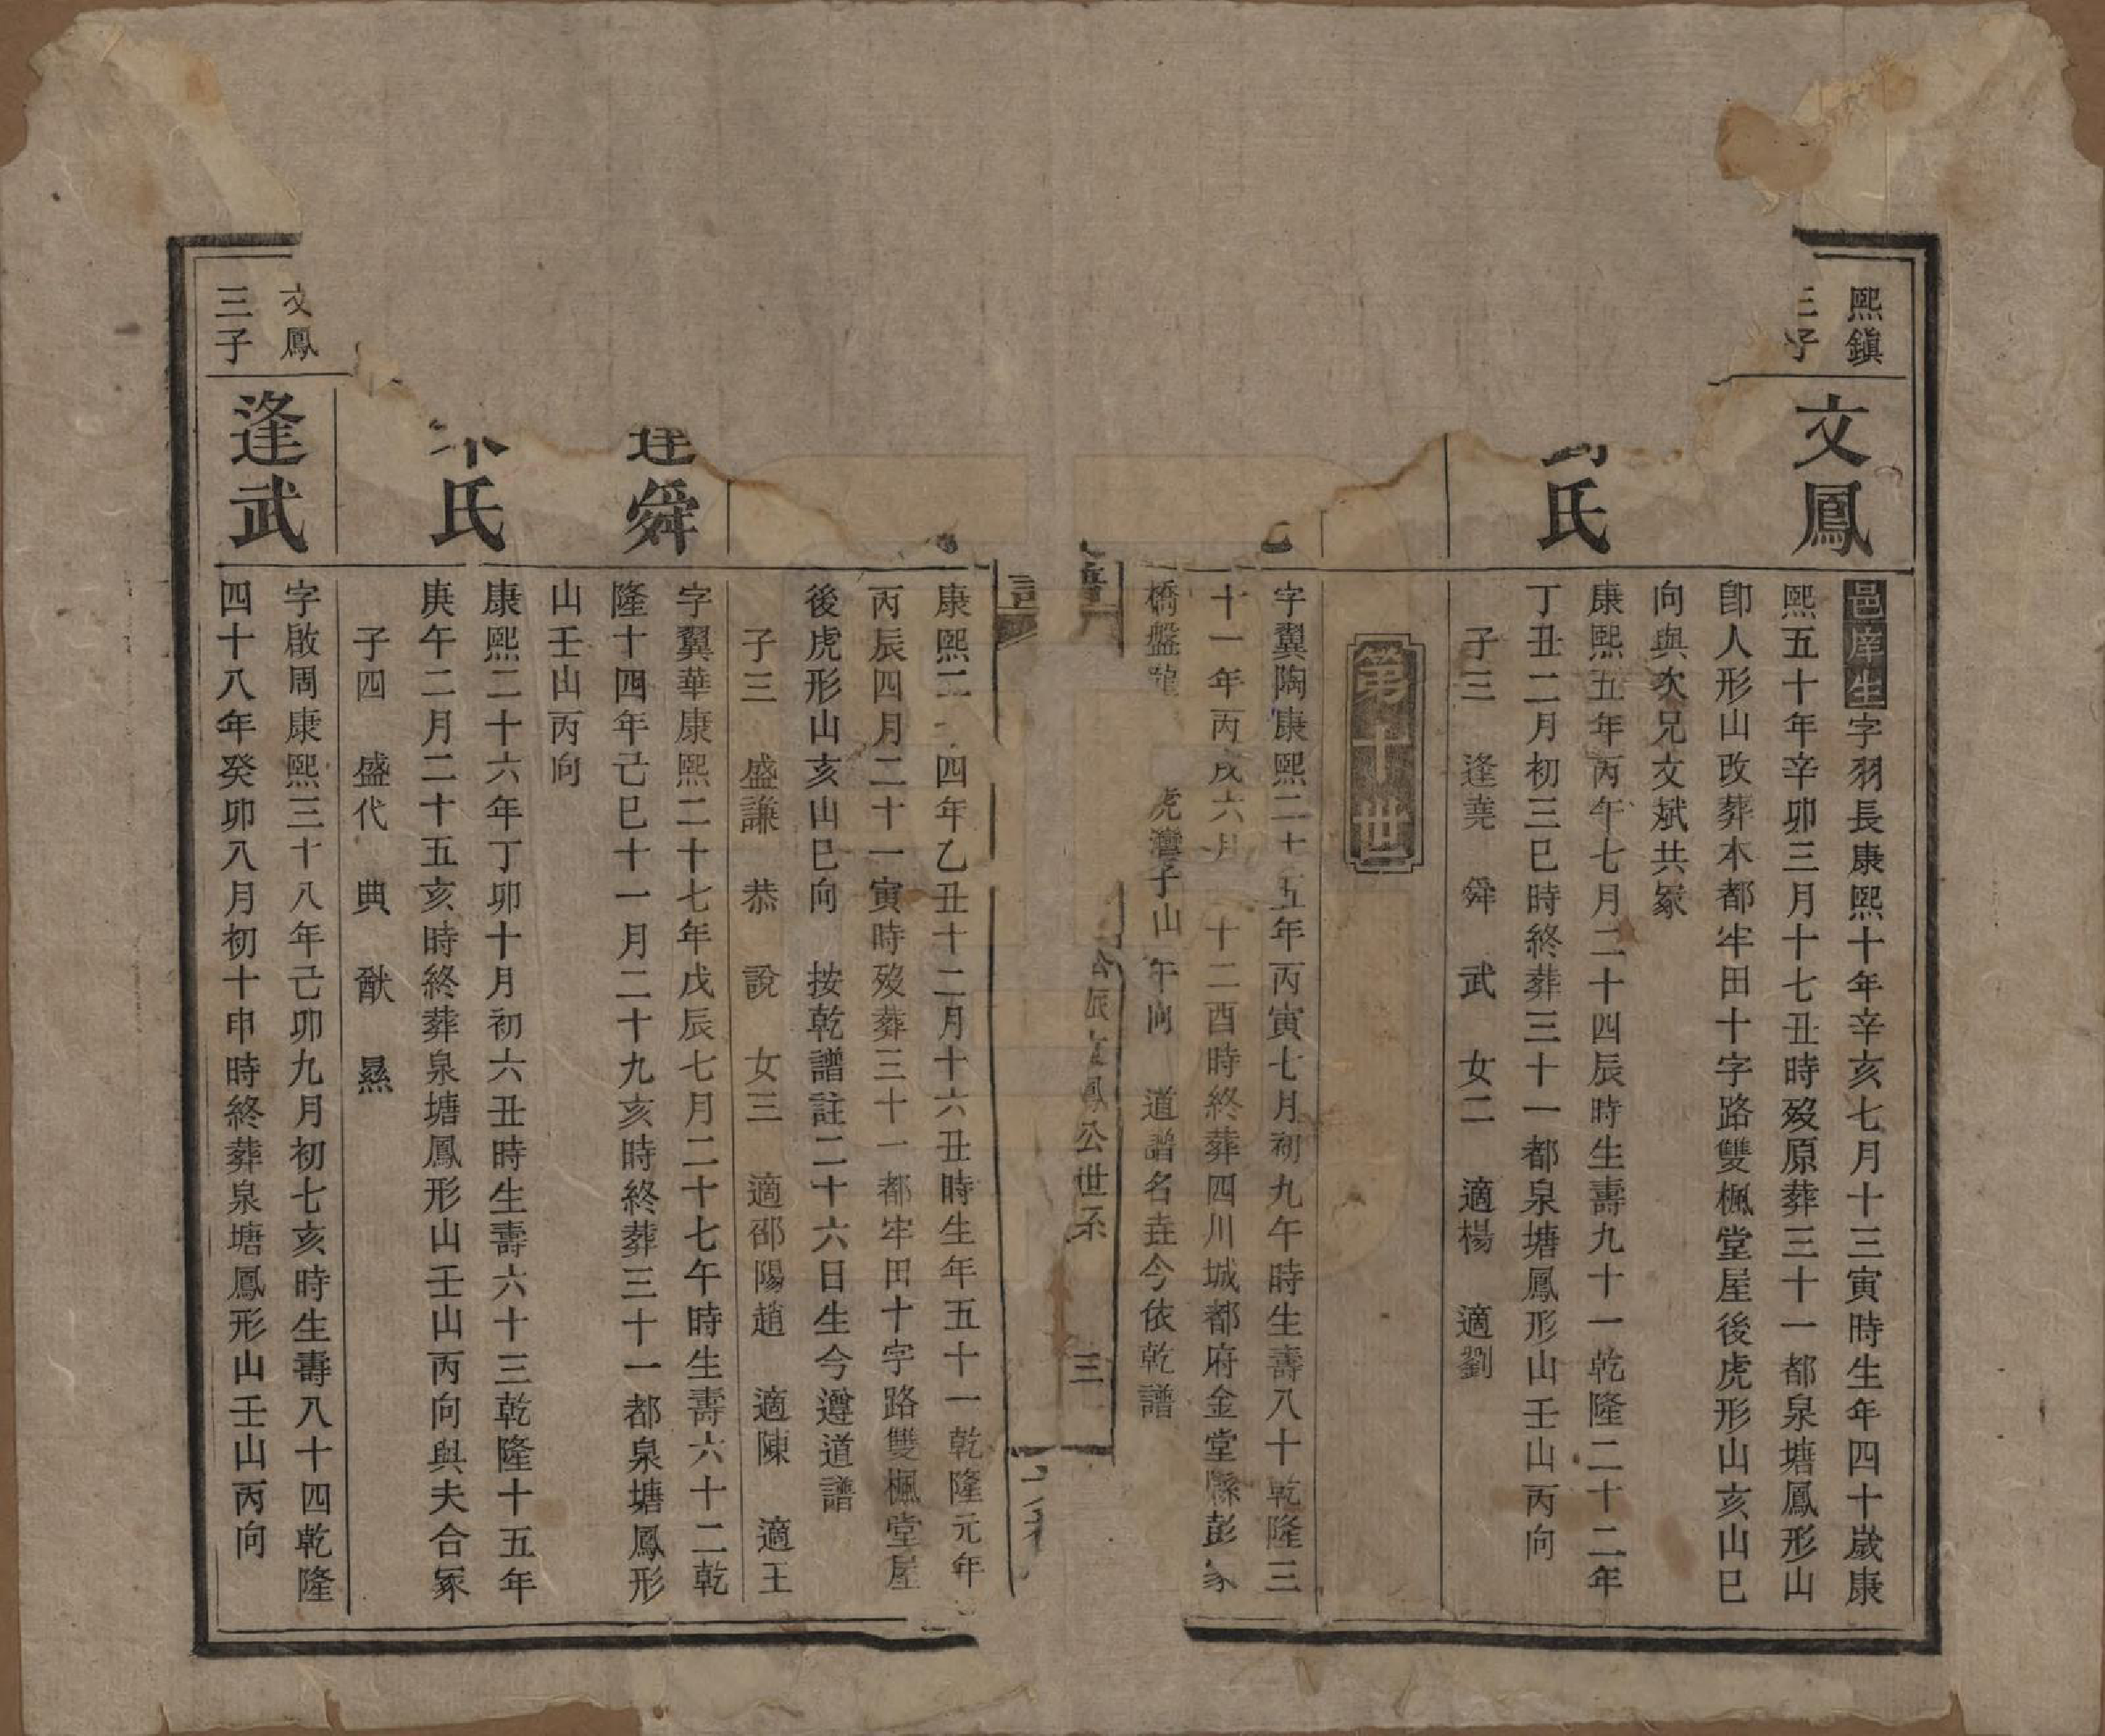 熙鎮
三子
文鳳
邑庠生字羽長康熙十年辛亥七月十三寅時生年四十歲康
熙五十年辛卯三月十七丑時歿原葬三十一都泉塘鳳形山
卽人形山改葬本都牢田十字路雙楓堂屋後虎形山亥山巳
向與次兄文斌共冢
氏
康熙五年丙午七月二十四辰時生壽九十一乾隆二十二年
丁丑二月初三巳時終葬三十一都泉塘鳳形山壬山丙向
子三 逢堯 舜 武 女二 適楊 適劉
第十世
字翼陶康熙二十五年丙寅七月初九午時生壽八十乾隆三
十一年丙戌六月 十二酉時終葬四川城都府金堂縣彭家
橋盤龍 虎灣子山午向 道譜名垚今依乾譜
公派文鳳公世系
三
康熙二 四年乙丑十二月十六丑時生年五十一乾隆元年
丙辰四月二十一寅時歿葬三十一都牢田十字路雙楓堂屋
後虎形山亥山巳向 按乾譜註二十六日生今遵道譜
子三 盛謙 恭 說 女三 適邵陽趙 適陳 適王
逢舜
字翼華康熙二十七年戊辰七月二十七午時生壽六十二乾
隆十四年己巳十一月二十九亥時終葬三十一都泉塘鳳形
山壬山丙向
氏
康熙二十六年丁卯十月初六丑時生壽六十三乾隆十五年
庚午二月二十五亥時終葬泉塘鳳形山壬山丙向與夫合冢
子四 盛代 典 猷 㬎
文鳳
三子
逢武
字啟周康熙三十八年己卯九月初七亥時生壽八十四乾隆
四十八年癸卯八月初十申時終葬泉塘鳳形山壬山丙向